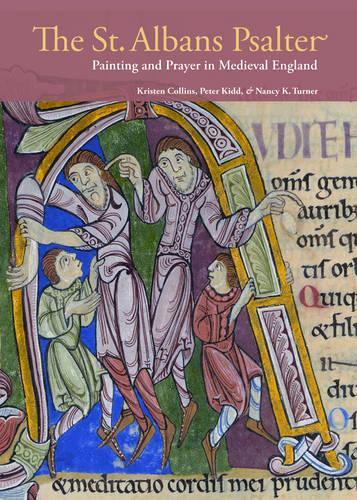 The St. Albans Psalter
Painting and Prayer in Medieval England
Kristen Collins, Peter Kidd, & Nancy K. Turner
UDITE
om̄s gen
aurib
om̄s qu
tis orb
& fili
& meditatio cordis mei prudenti